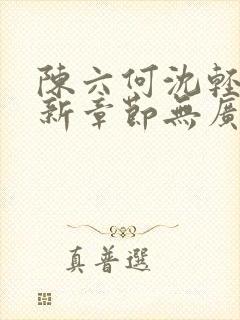 陳六何沈輕
新章節無廣
真普選